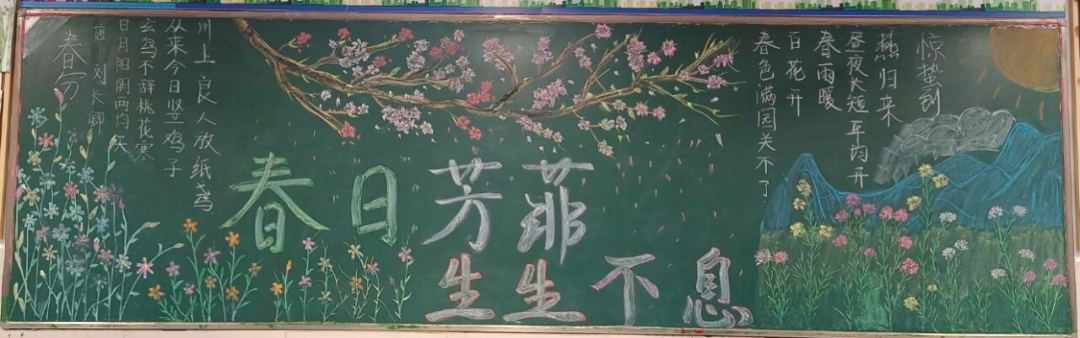 春分
唐 刘长卿
日月阳阴两均天
玄鸟不辞桃花寒
从来今日竖鸡子
川上良人放纸鸢
春日芳菲
生生不息
惊蛰到
燕归来
昼夜长短平均开
春雨暖
百花开
春色满园关不了